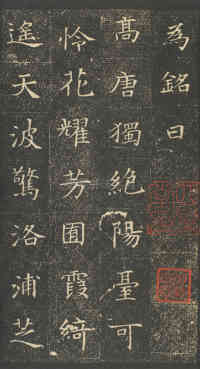 為銘曰
髙唐獨絶陽臺可
怜花耀芳囿霞綺
遙天波驚洛浦芝